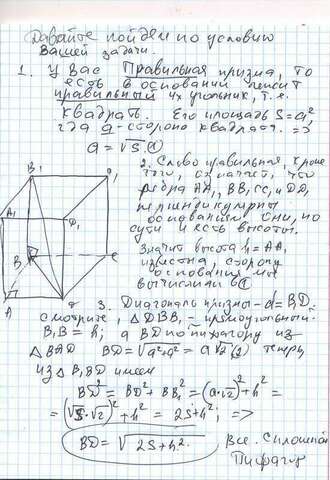 Давайте пойдем по условию
Вашей задачи.
1. У Вас Правильная призма, то
есть в основании лежит
правильный 4х угольник, т.е.
квадрат. Его площадь S=a²,
где a-сторона квадрата. =>
a = √S. (1)
2. Слово правильная, кроме
того, означает, что
ребра AA₁, BB₁ CC₁ и DD₁
перпендикулярны
основаниям они, по
сути и есть высоты.
Значит высота h = AA₁
известна, сторону
основания мы
вычислили в (1)
B₁
C₁
A₁
D₁
B
C
A
3. Диагональ призмы - d = B₁D.
смотрите, △DBB₁ - прямоугольный.
B₁B = h; а BD по пифагору из
△BAD BD = √a²+a² = a√2 (2) теперь
из △B₁BD имеем
B₁D² = BD² + BB₁² = (a√2)² + h² =
= (√S·√2)² + h² = 2S + h²; =>
B₁D = √2S + h².
Все. Сплошной
Пифагор